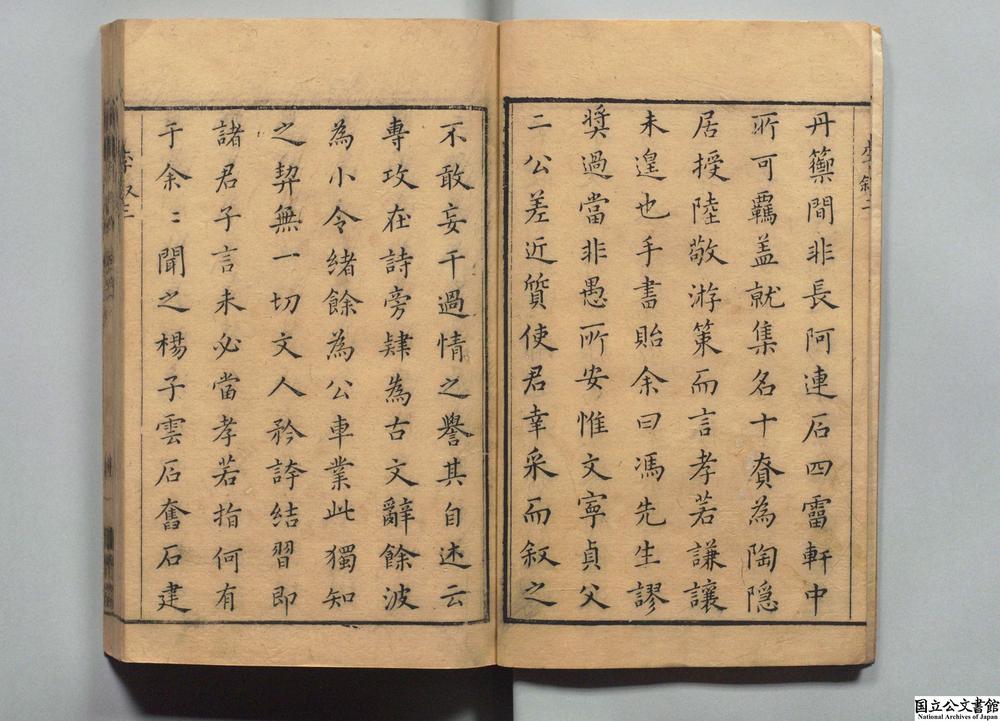 丹籞間非長阿連石四霤軒中
所可羈盖就集名十賚為陶隐
居授陸敬游策而言孝若謙讓
未遑也手書貽余曰馮先生謬
奬過當非愚所安惟文寧貞父
二公差近質使君幸采而叙之
不敢妄干過情之譽其自述云
專攻在詩旁肄為古文辭餘波
為小令緒餘為公車業此獨知
之契無一切文人矜誇結習即
諸君子言未必當孝若指何有
于余〻聞之楊子雲石奮石建
国立公文書館
National Archives of Japan